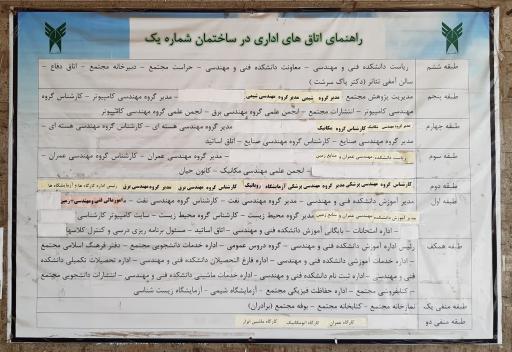 راهنمای اتاق های اداری در ساختمان شماره یک
طبقه ششم
ریاست دانشکده فنی و مهندسی – معاونت دانشکده فنی و مهندسی – حراست مجتمع – دبیرخانه مجتمع – اتاق دفاع –
سالن آمفی تئاتر (دکتر پاک سرشت)
طبقه پنجم
مدیریت پژوهش مجتمع مدیر گروه شیمی مدیر گروه مهندسی شیمی – مدیر گروه مهندسی کامپیوتر – کارشناس گروه
مهندسی کامپیوتر – انتشارات مجتمع – انجمن علمی گروه مهندسی برق – انجمن علمی گروه مهندسی کامپیوتر
طبقه چهارم
مدیر گروه مهندسی مکانیک کارشناس گروه مکانیک مدیر گروه مهندسی هسته ای – کارشناس گروه مهندسی هسته ای –
مدیر گروه مهندسی صنایع – کارشناس گروه مهندسی صنایع – اتاق اساتید
طبقه سوم
ریاست دانشکده مهندسی عمران و منابع زمین – مدیر گروه مهندسی عمران – کارشناس گروه مهندسی عمران –
– انجمن علمی مهندسی مکانیک – کانون
طبقه دوم
کارشناس گروه مهندسی پزشکی مدیر گروه مهندسی پزشکی آزمایشگاه رباتیک کارشناس گروه مهندسی برق مدیر گروه مهندسی برق رئیس اداره کارگاه ها و آزمایشگاه ها
طبقه اول
مدیر آموزش دانشکده فنی و مهندسی – مدیر گروه مهندسی نفت – کارشناس گروه مهندسی نفت – امور مالی فنی و مهندسی – زمین
مدیر آموزش دانشکده مهندسی عمران و منابع زمین مدیر گروه محیط زیست – کارشناس گروه محیط زیست – سایت کامپیوتر کارشناسی
– اداره امتحانات – بایگانی آموزش دانشکده فنی و مهندسی – اتاق اساتید – مسئول برنامه ریزی درسی و کنترل کلاسها
طبقه همکف
رئیس اداره آموزش دانشکده فنی و مهندسی – گروه دروس عمومی – اداره خدمات دانشجویی مجتمع – دفتر فرهنگ اسلامی مجتمع
– اداره خدمات آموزشی دانشکده فنی و مهندسی – اداره فارغ التحصیلان دانشکده فنی و مهندسی – اداره تحصیلات تکمیلی دانشکده
فنی و مهندسی – اداره ثبت نام دانشکده فنی و مهندسی – اداره خدمات ماشینی دانشکده فنی و مهندسی – انتشارات دانشجویی مجتمع
– کتابفروشی مجتمع – اداره حفاظت فیزیکی مجتمع – آزمایشگاه شیمی – آزمایشگاه زیست شناسی
طبقه منفی یک
نمازخانه مجتمع – کتابخانه مجتمع – بوفه مجتمع (برادران)
طبقه منفی دو
کارگاه عمران کارگاه اتومکانیک کارگاه ماشین ابزار